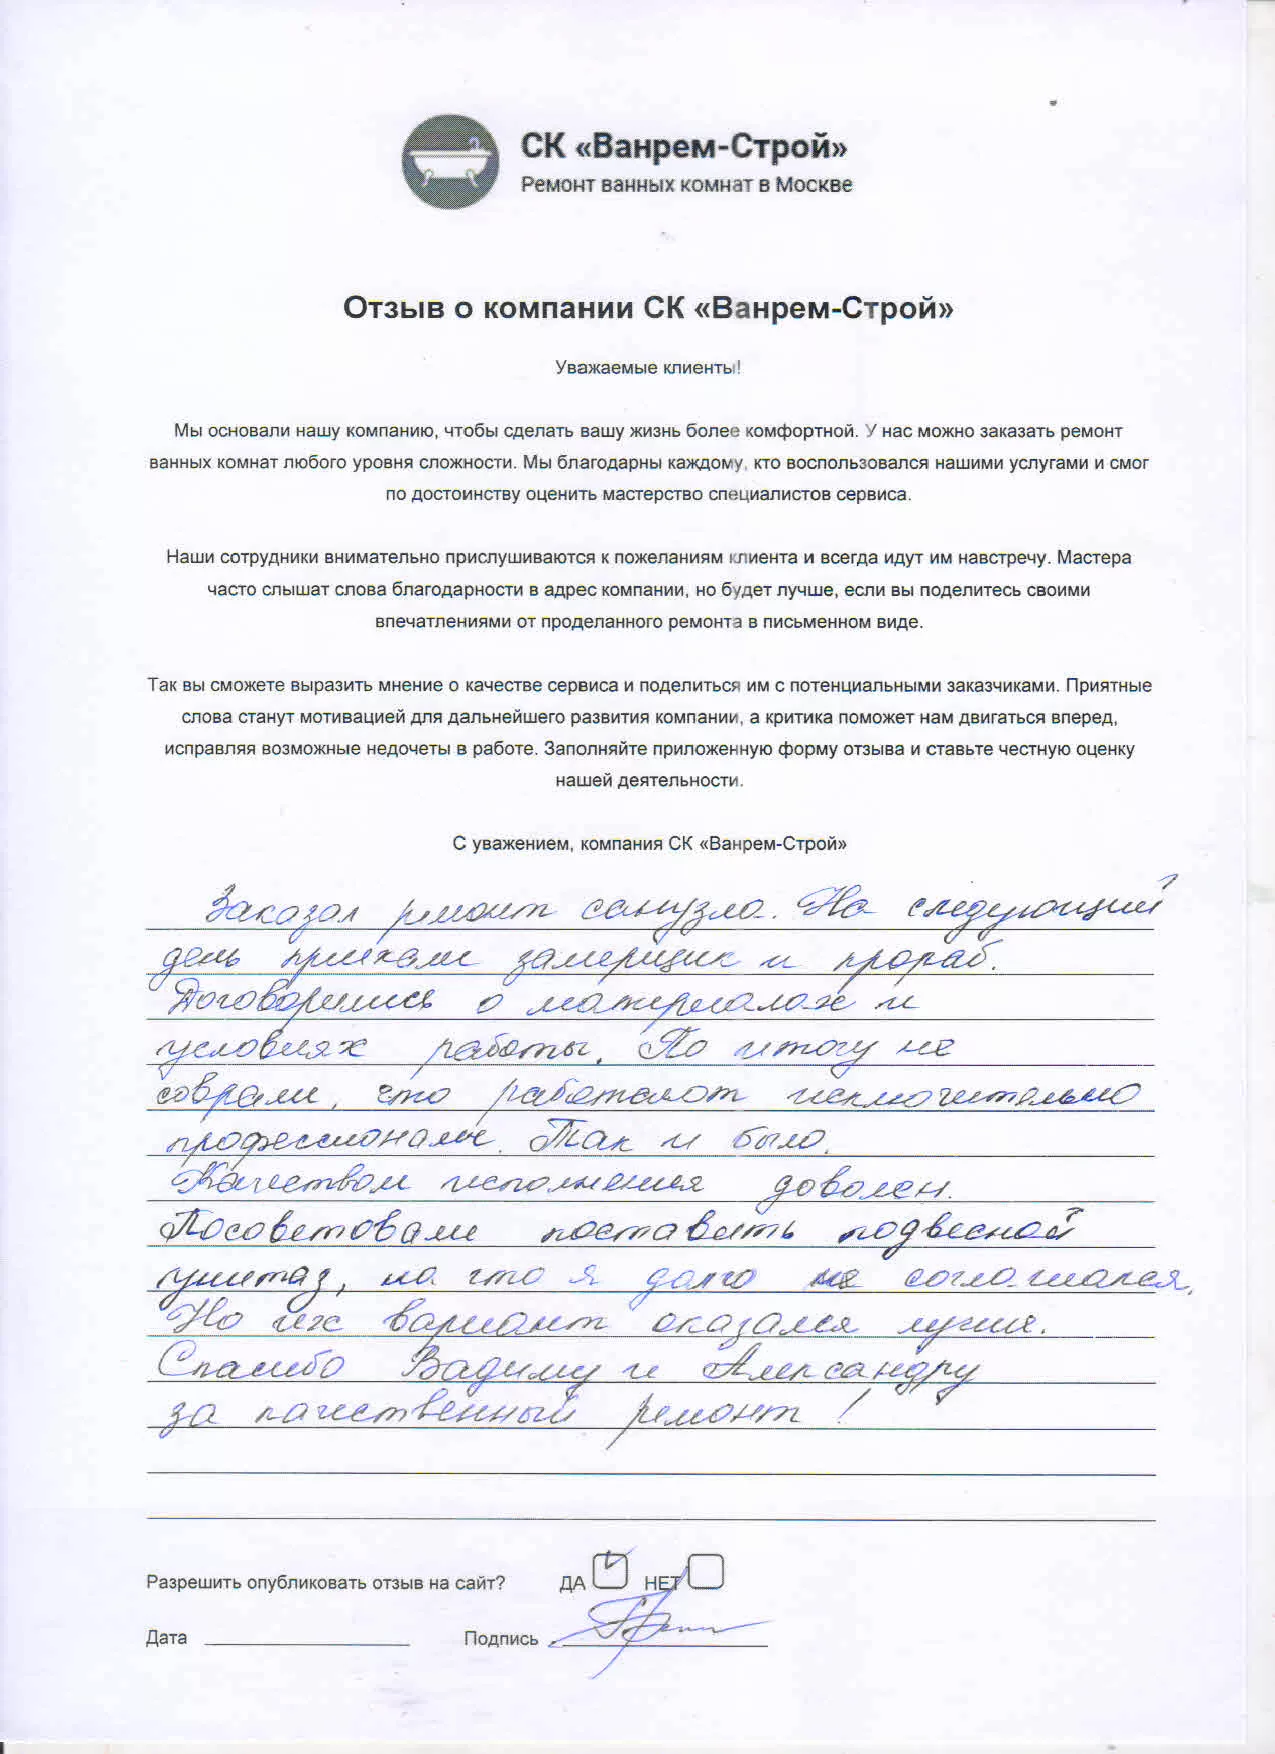 СК «Ванрем-Строй»
Ремонт ванных комнат в Москве
Отзыв о компании СК «Ванрем-Строй»
Уважаемые клиенты!
Мы основали нашу компанию, чтобы сделать вашу жизнь более комфортной. У нас можно заказать ремонт
ванных комнат любого уровня сложности. Мы благодарны каждому, кто воспользовался нашими услугами и смог
по достоинству оценить мастерство специалистов сервиса.
Наши сотрудники внимательно прислушиваются к пожеланиям клиента и всегда идут им навстречу. Мастера
часто слышат слова благодарности в адрес компании, но будет лучше, если вы поделитесь своими
впечатлениями от проделанного ремонта в письменном виде.
Так вы сможете выразить мнение о качестве сервиса и поделиться им с потенциальными заказчиками. Приятные
слова станут мотивацией для дальнейшего развития компании, а критика поможет нам двигаться вперед,
исправляя возможные недочеты в работе. Заполняйте приложенную форму отзыва и ставьте честную оценку
нашей деятельности.
С уважением, компания СК «Ванрем-Строй»
Заказал ремонт санузла. На следующий
день приехали замерщик и прораб.
Договорились о материалах и
условиях работы. По итогу не
соврали, что работают исключительно
профессионалы. Так и было.
Качеством исполнения доволен.
Посоветовали поставить подвесной
унитаз, на что я долго не соглашался.
Но их вариант оказался лучше.
Спасибо Вадиму и Александру
за качественный ремонт!
Разрешить опубликовать отзыв на сайт? ДА НЕТ
Дата Подпись